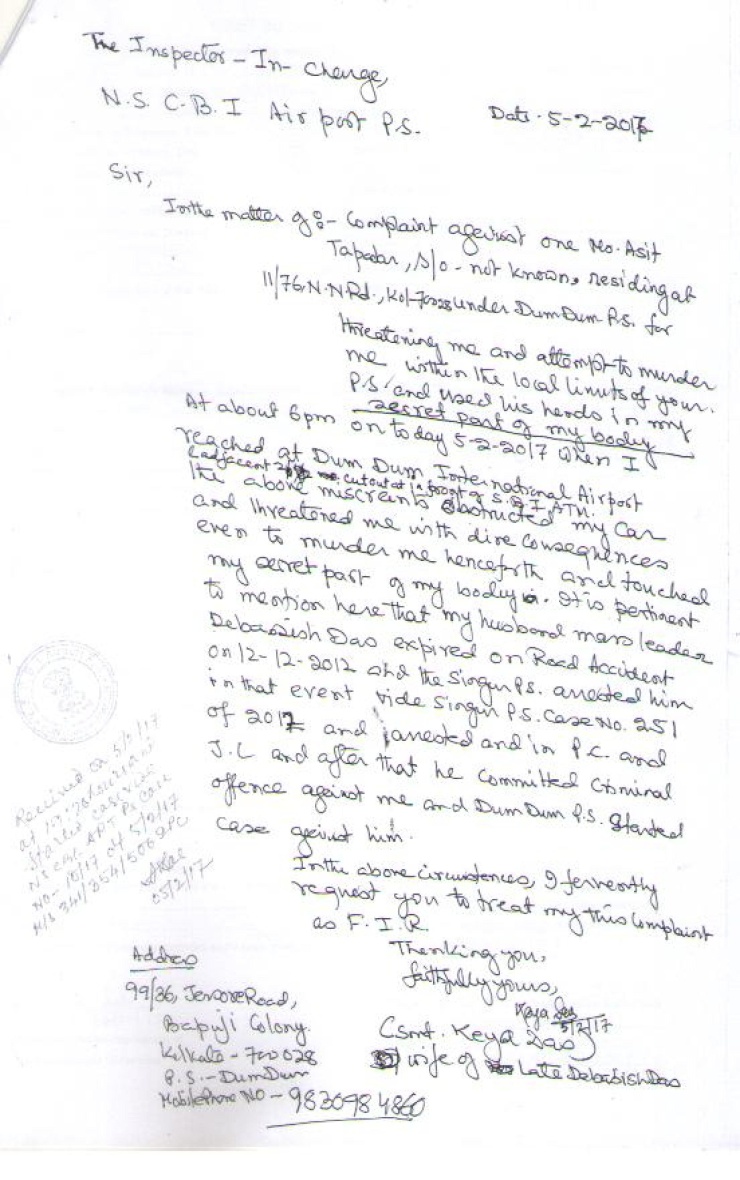 The Inspector - In - Charge,
N. S. C. B. I Airport P.S.
Date - 5-2-2017
Sir,
In the matter of :- Complaint against one Mr. Asit
Tapadar, S/o - not known, residing at
11/76, N.N Rd., Kol-700028 under Dum Dum P.S. for
threatening me and attempt to murder
me within the local limits of your
P.S. and used his hands in my
secret part of my body
At about 6 pm on today 5-2-2017 when I
reached at Dum Dum International Airport
(adjacent cutout at in front of S.B.I ATM.
the above miscreants obstructed my car
and threatened me with dire consequences
even to murder me henceforth and touched
my secret part of my body. It is pertinent
to mention here that my husband mass leader
Debasish Das expired on Road Accident
on 12-12-2012 and the Singur P.S. arrested him
in that event vide Singur P.S. Case No. 251
of 2012 and arrested and in P.C. and
J.C and after that he committed Criminal
offence against me and Dum Dum P.S. started
case against him.
In the above circumstances, I fervently
request you to treat my this Complaint
as F. I. R.
Thanking you,
faithfully yours,
Keya Das
5/2/17
(Smt. Keya Das)
wife of Late Debasish Das
Address
99/36, Jessore Road,
Bapuji Colony.
Kolkata - 700028
P.S. - Dum Dum
Mobile Phone NO - 9830984860
Received on 5/2/17
at hours and
started case vide
NSCBI APT PS Case
NO - 10/17 dt 5/2/17
U/S 341/354/506 IPC
05/2/17